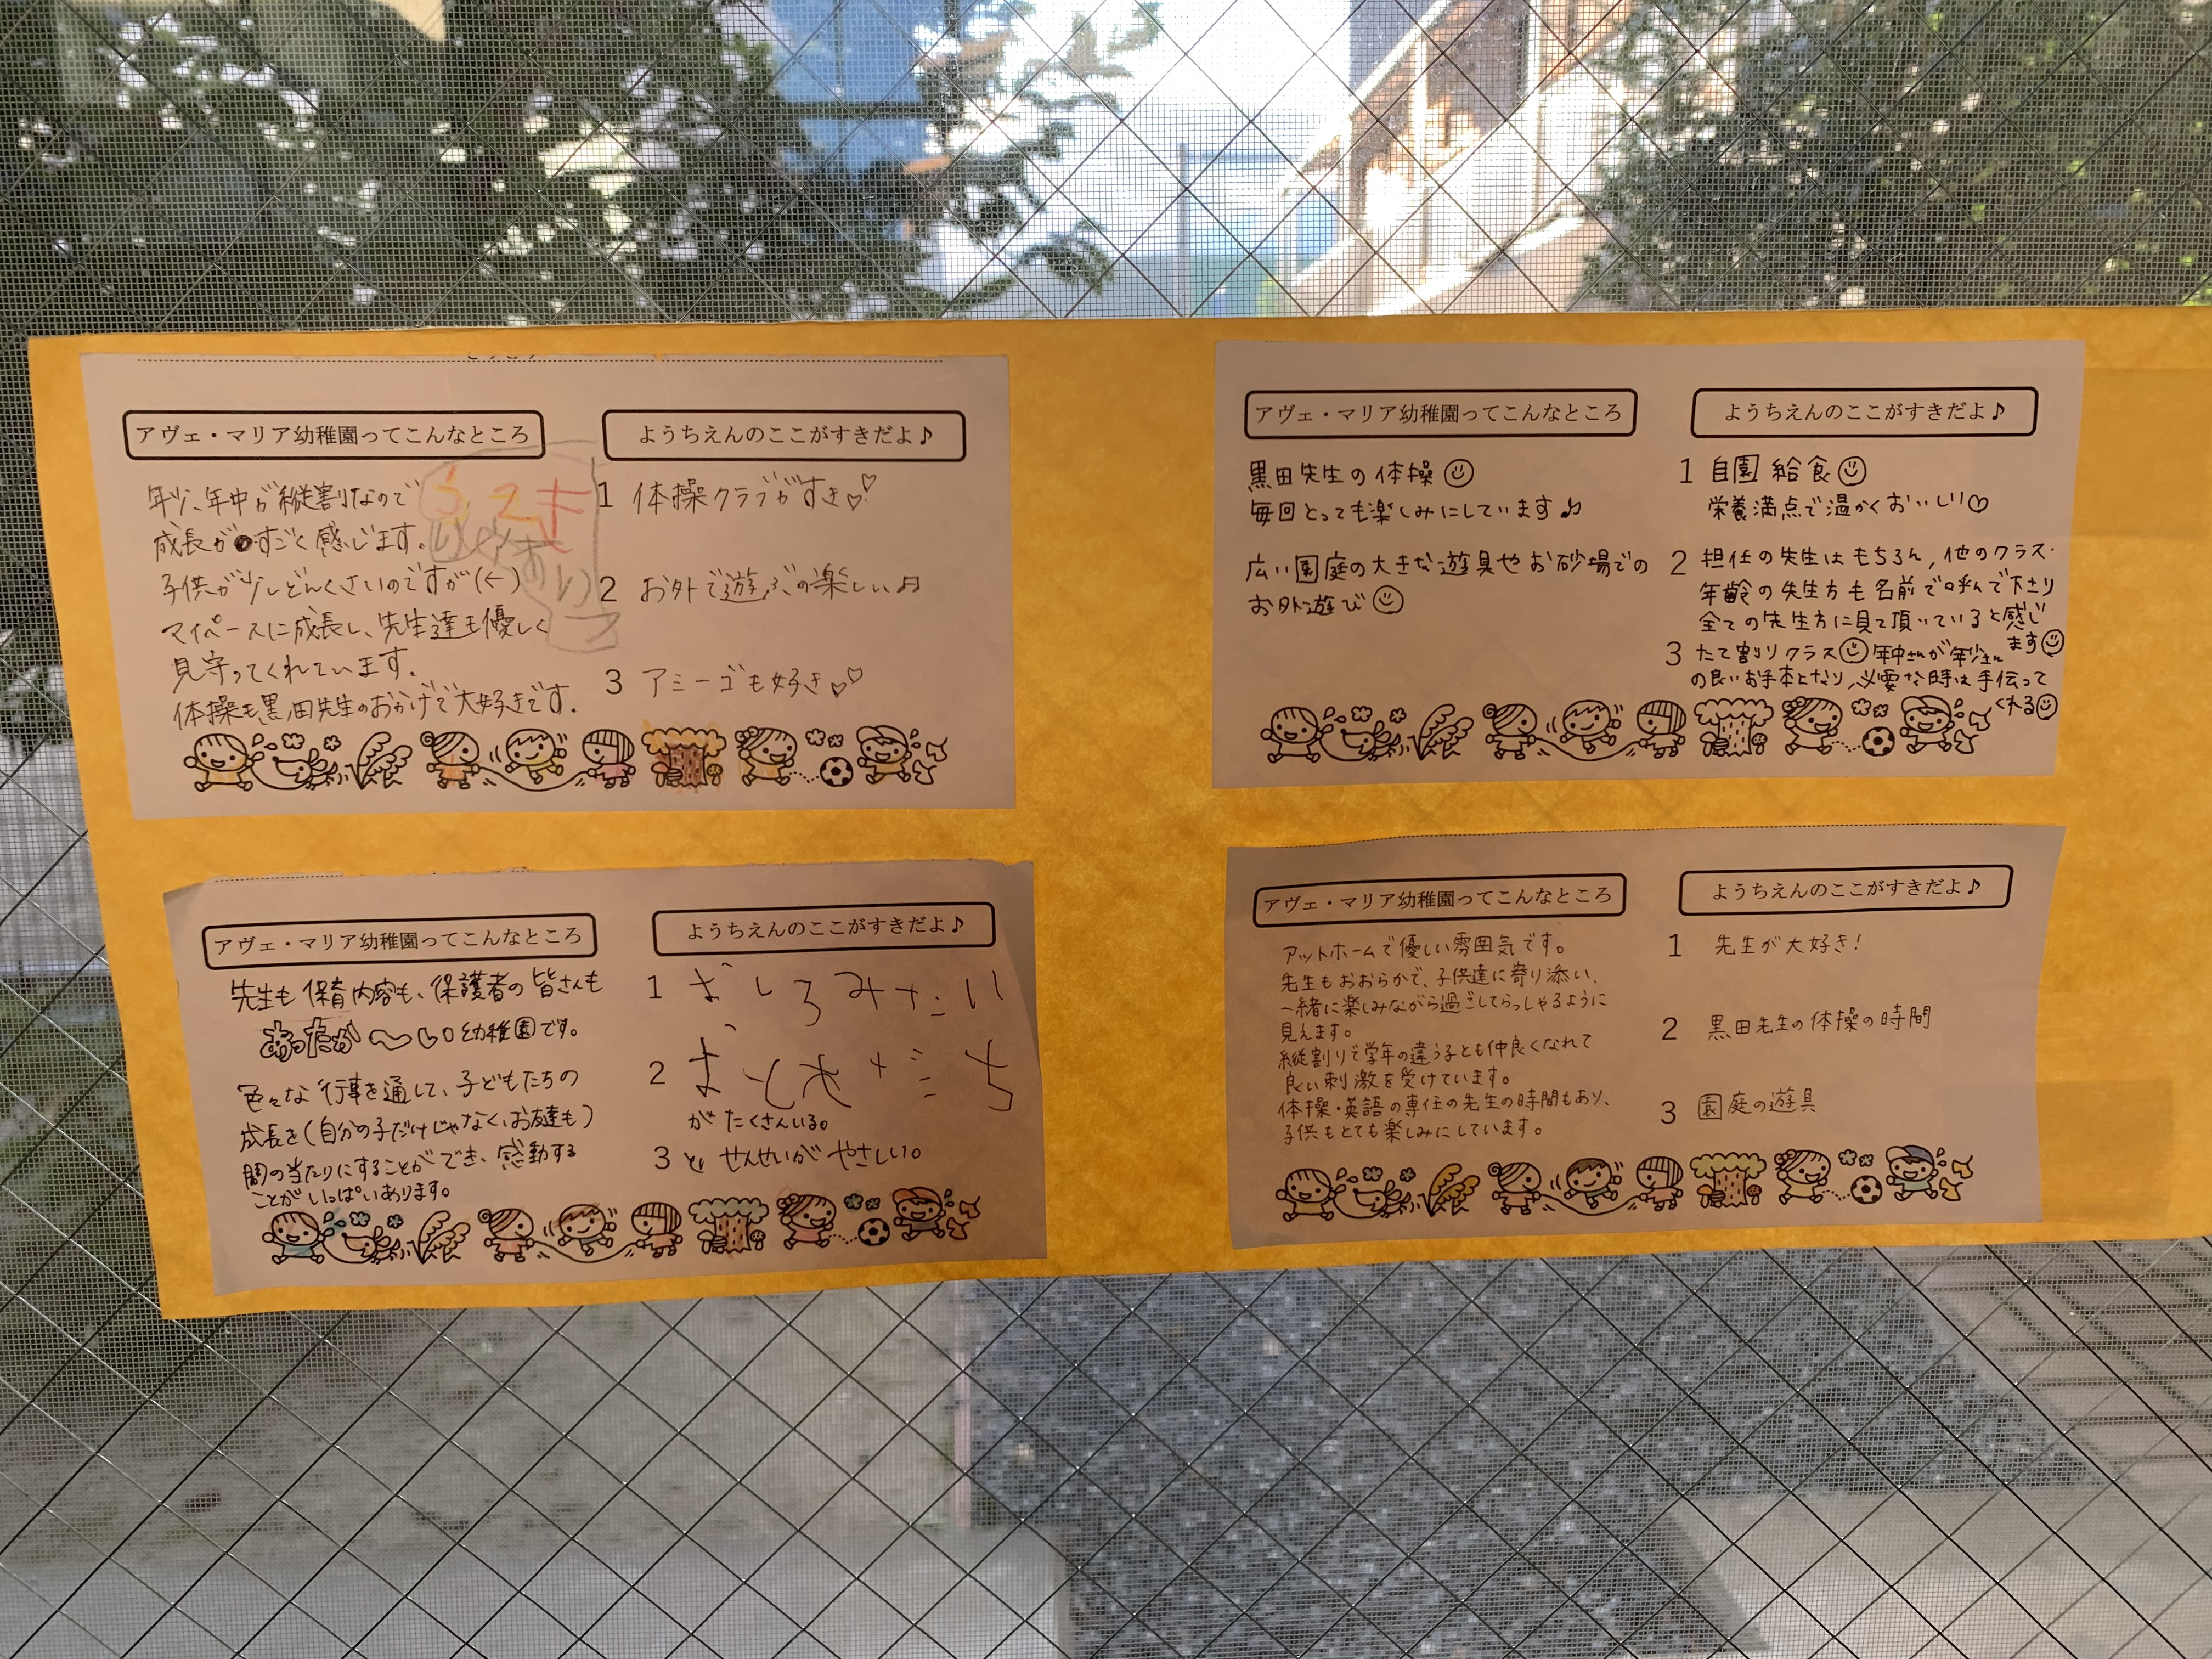 アヴェ・マリア幼稚園ってこんなところ
年少、年中が縦割なので
成長がすごく感じます。
子供が少しどんくさいのですが(^^)
マイペースに成長し、先生達も優しく
見守ってくれています。
体操も黒田先生のおかげで大好きです。
ようちえんのここがすきだよ♪
1 体操クラブがすき♡♡
2 お外で遊ぶの楽しい♫
3 アミーゴも好き♡♡
アヴェ・マリア幼稚園ってこんなところ
黒田先生の体操☺
毎回とっても楽しみにしています♪
広い園庭の大きな遊具やお砂場での
お外遊び☺
ようちえんのここがすきだよ♪
1 自園給食☺
栄養満点で温かくおいしい♡
2 担任の先生はもちろん,他のクラス・
年齢の先生方も名前で呼んで下さり
全ての先生方に見て頂いていると感じ
ます☺
3 たて割りクラス☺年中さんが年少さん
の良いお手本となり,必要な時は手伝って
くれる☺
アヴェ・マリア幼稚園ってこんなところ
先生も保育内容も、保護者の皆さんも
あったか〜い幼稚園です。
色々な行事を通して、子どもたちの
成長を(自分の子だけじゃなく、お友達も)
間の当たりにすることができ、感動する
ことがいっぱいあります。
ようちえんのここがすきだよ♪
1 おしろみたい
2 おともだち
がたくさんいる。
3 せんせいが やさしい。
アヴェ・マリア幼稚園ってこんなところ
アットホームで優しい雰囲気です。
先生もおおらかで、子供達に寄り添い、
一緒に楽しみながら過ごしてらっしゃるように
見えます。
縦割りで学年の違う子とも仲良くなれて
良い刺激を受けています。
体操・英語の専任の先生の時間もあり、
子供もとても楽しみにしています。
ようちえんのここがすきだよ♪
1 先生が大好き!
2 黒田先生の体操の時間
3 園庭の遊具